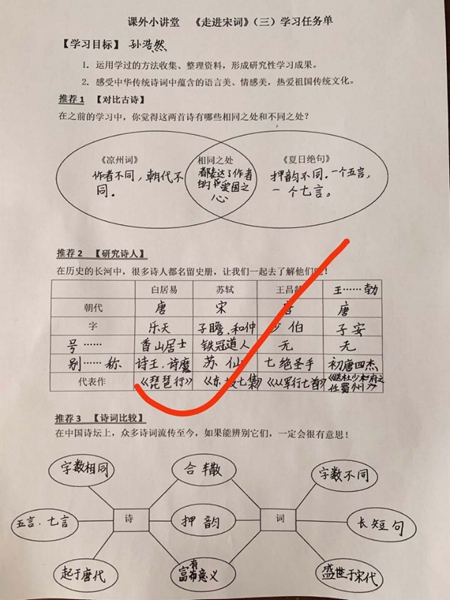 课外小讲堂 《走进宋词》（三）学习任务单
【学习目标】 孙浩然
1. 运用学过的方法收集、整理资料，形成研究性学习成果。
2. 感受中华传统诗词中蕴含的语言美、情感美，热爱祖国传统文化。
推荐1 【对比古诗】
在之前的学习中，你觉得这两首诗有哪些相同之处和不同之处？
《凉州词》 相同之处 《夏日绝句》
作者不同，朝代不同。
都表达了作者的爱国之心
押韵不同。一个五言，一个七言。
推荐2 【研究诗人】
在历史的长河中，很多诗人都名留史册，让我们一起去了解他们吧！
白居易 苏轼 王昌龄 王……勃
朝代 唐 宋 唐 唐
字 乐天 子瞻，和仲 少伯 子安
号…… 香山居士 铁冠道人 无 无
别……称 诗王，诗魔 苏仙 七绝圣手 初唐四杰
代表作 《琵琶行》 《东坡七集》 《从军行七首》 《送杜少府之任蜀州》
推荐3 【诗词比较】
在中国诗坛上，众多诗词流传至今，如果能辨别它们，一定会很有意思！
字数相同 合辙 字数不同
五言、七言 诗 押韵 词 长短句
起于唐代 富有意义 盛世于宋代